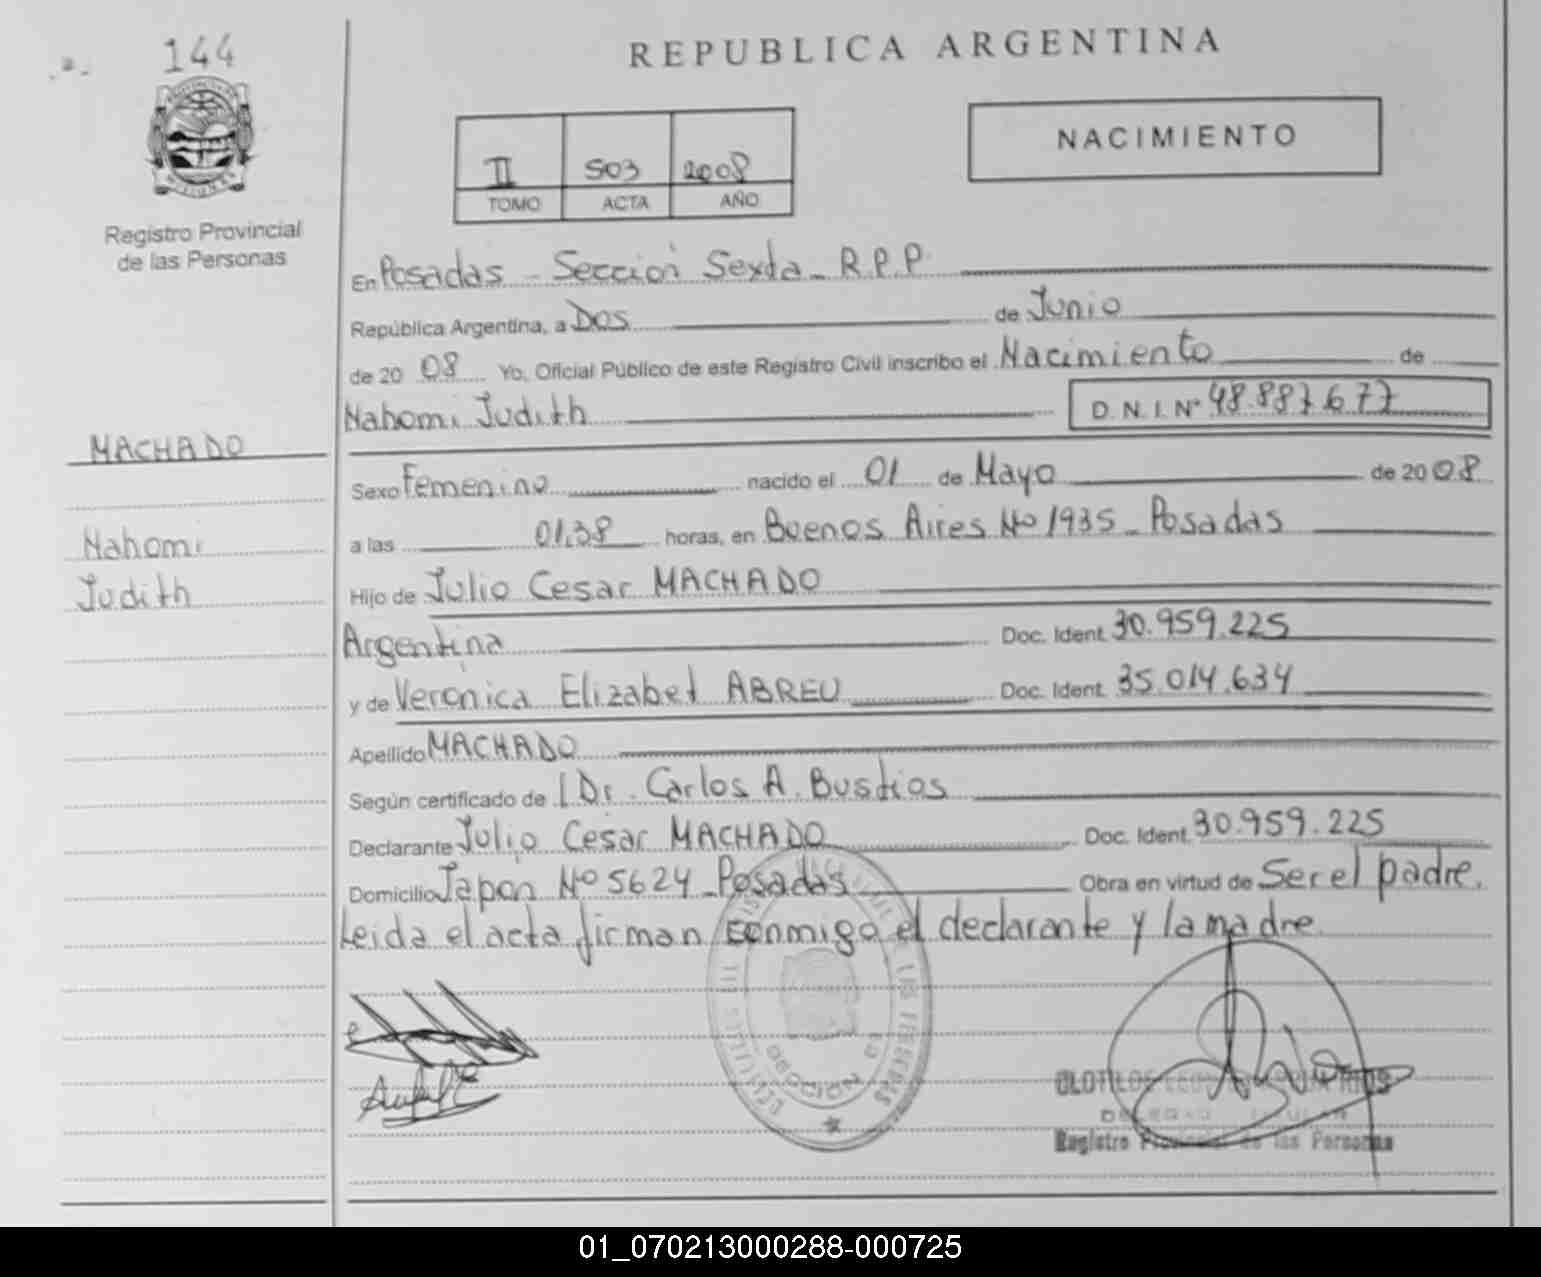 144
REPUBLICA ARGENTINA
NACIMIENTO
II 503 2008
TOMO ACTA AÑO
Registro Provincial
de las Personas
En Posadas - Sección Sexta - R.P.P.
República Argentina, a Dos de Junio
de 2008 Yo, Oficial Público de este Registro Civil inscribo el Nacimiento de
Nahomi Judith D.N.I. Nº 48.887.677
MACHADO
Sexo Femenino nacido el 01 de Mayo de 2008
Nahomi
a las 01,38 horas, en Buenos Aires Nº 1935 - Posadas
Judith
Hijo de Julio Cesar MACHADO
Argentina Doc. Ident. 30.959.225
y de Veronica Elizabet ABREU Doc. Ident. 35.014.634
Apellido MACHADO
Según certificado de Dr. Carlos A. Bustios
Declarante Julio Cesar MACHADO Doc. Ident. 30.959.225
Domicilio Japón Nº 5624 - Posadas Obra en virtud de Ser el padre.
Leida el acta firman conmigo el declarante y la madre.
SECCION 6a
Registro Provincial de las Personas
01_070213000288-000725